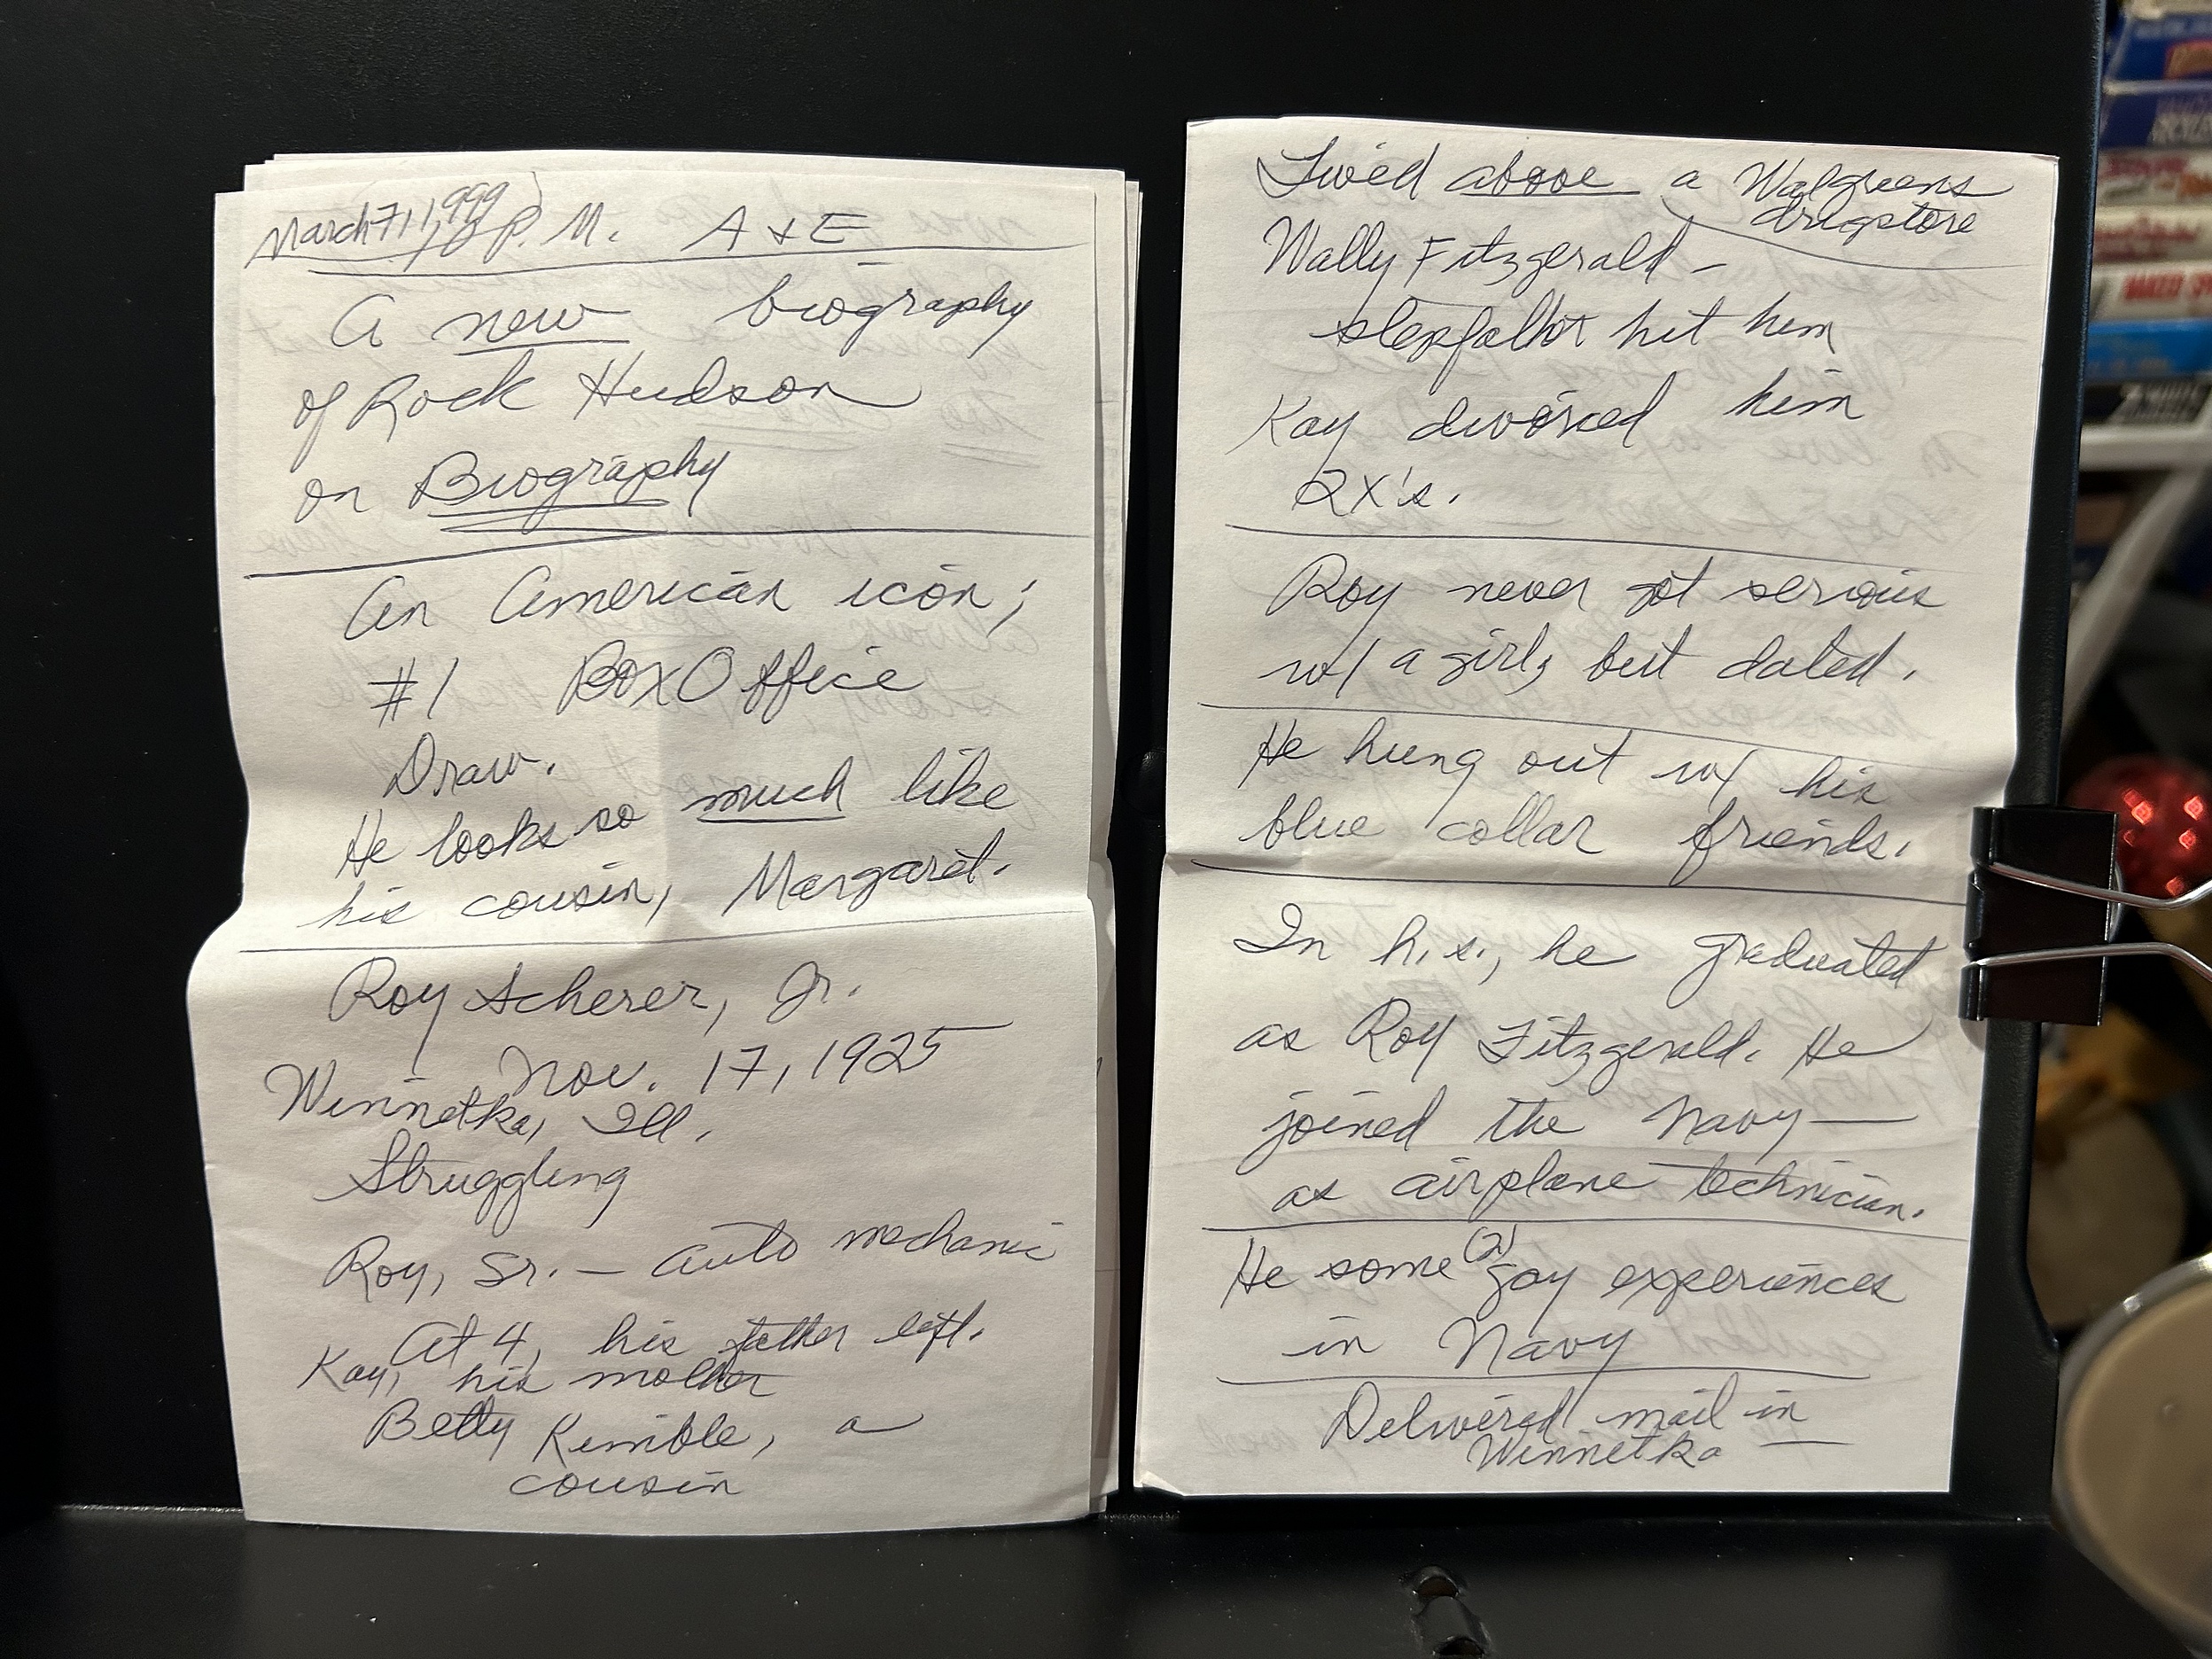 March 7, 1999
8 P.M. A & E
A new biography
of Rock Hudson
on Biography
An American icon;
#1 Box Office
Draw.
He looks so much like
his cousin, Margaret.
Roy Scherer, Jr.
Nov. 17, 1925
Winnetka, Ill.
Struggling
Roy, Sr. — auto mechanic
At 4, his father left.
Kay, his mother
Betty Kimble, a
cousin
Lived above a Walgreens
drugstore
Wally Fitzgerald –
stepfather hit him
Kay divorced him
2X's.
Roy never got serious
w/ a girl, but dated.
He hung out w/ his
blue collar friends.
In h.s., he graduated
as Roy Fitzgerald. He
joined the Navy —
as airplane technician.
He some (2) gay experiences
in Navy
Delivered mail in
Winnetka —